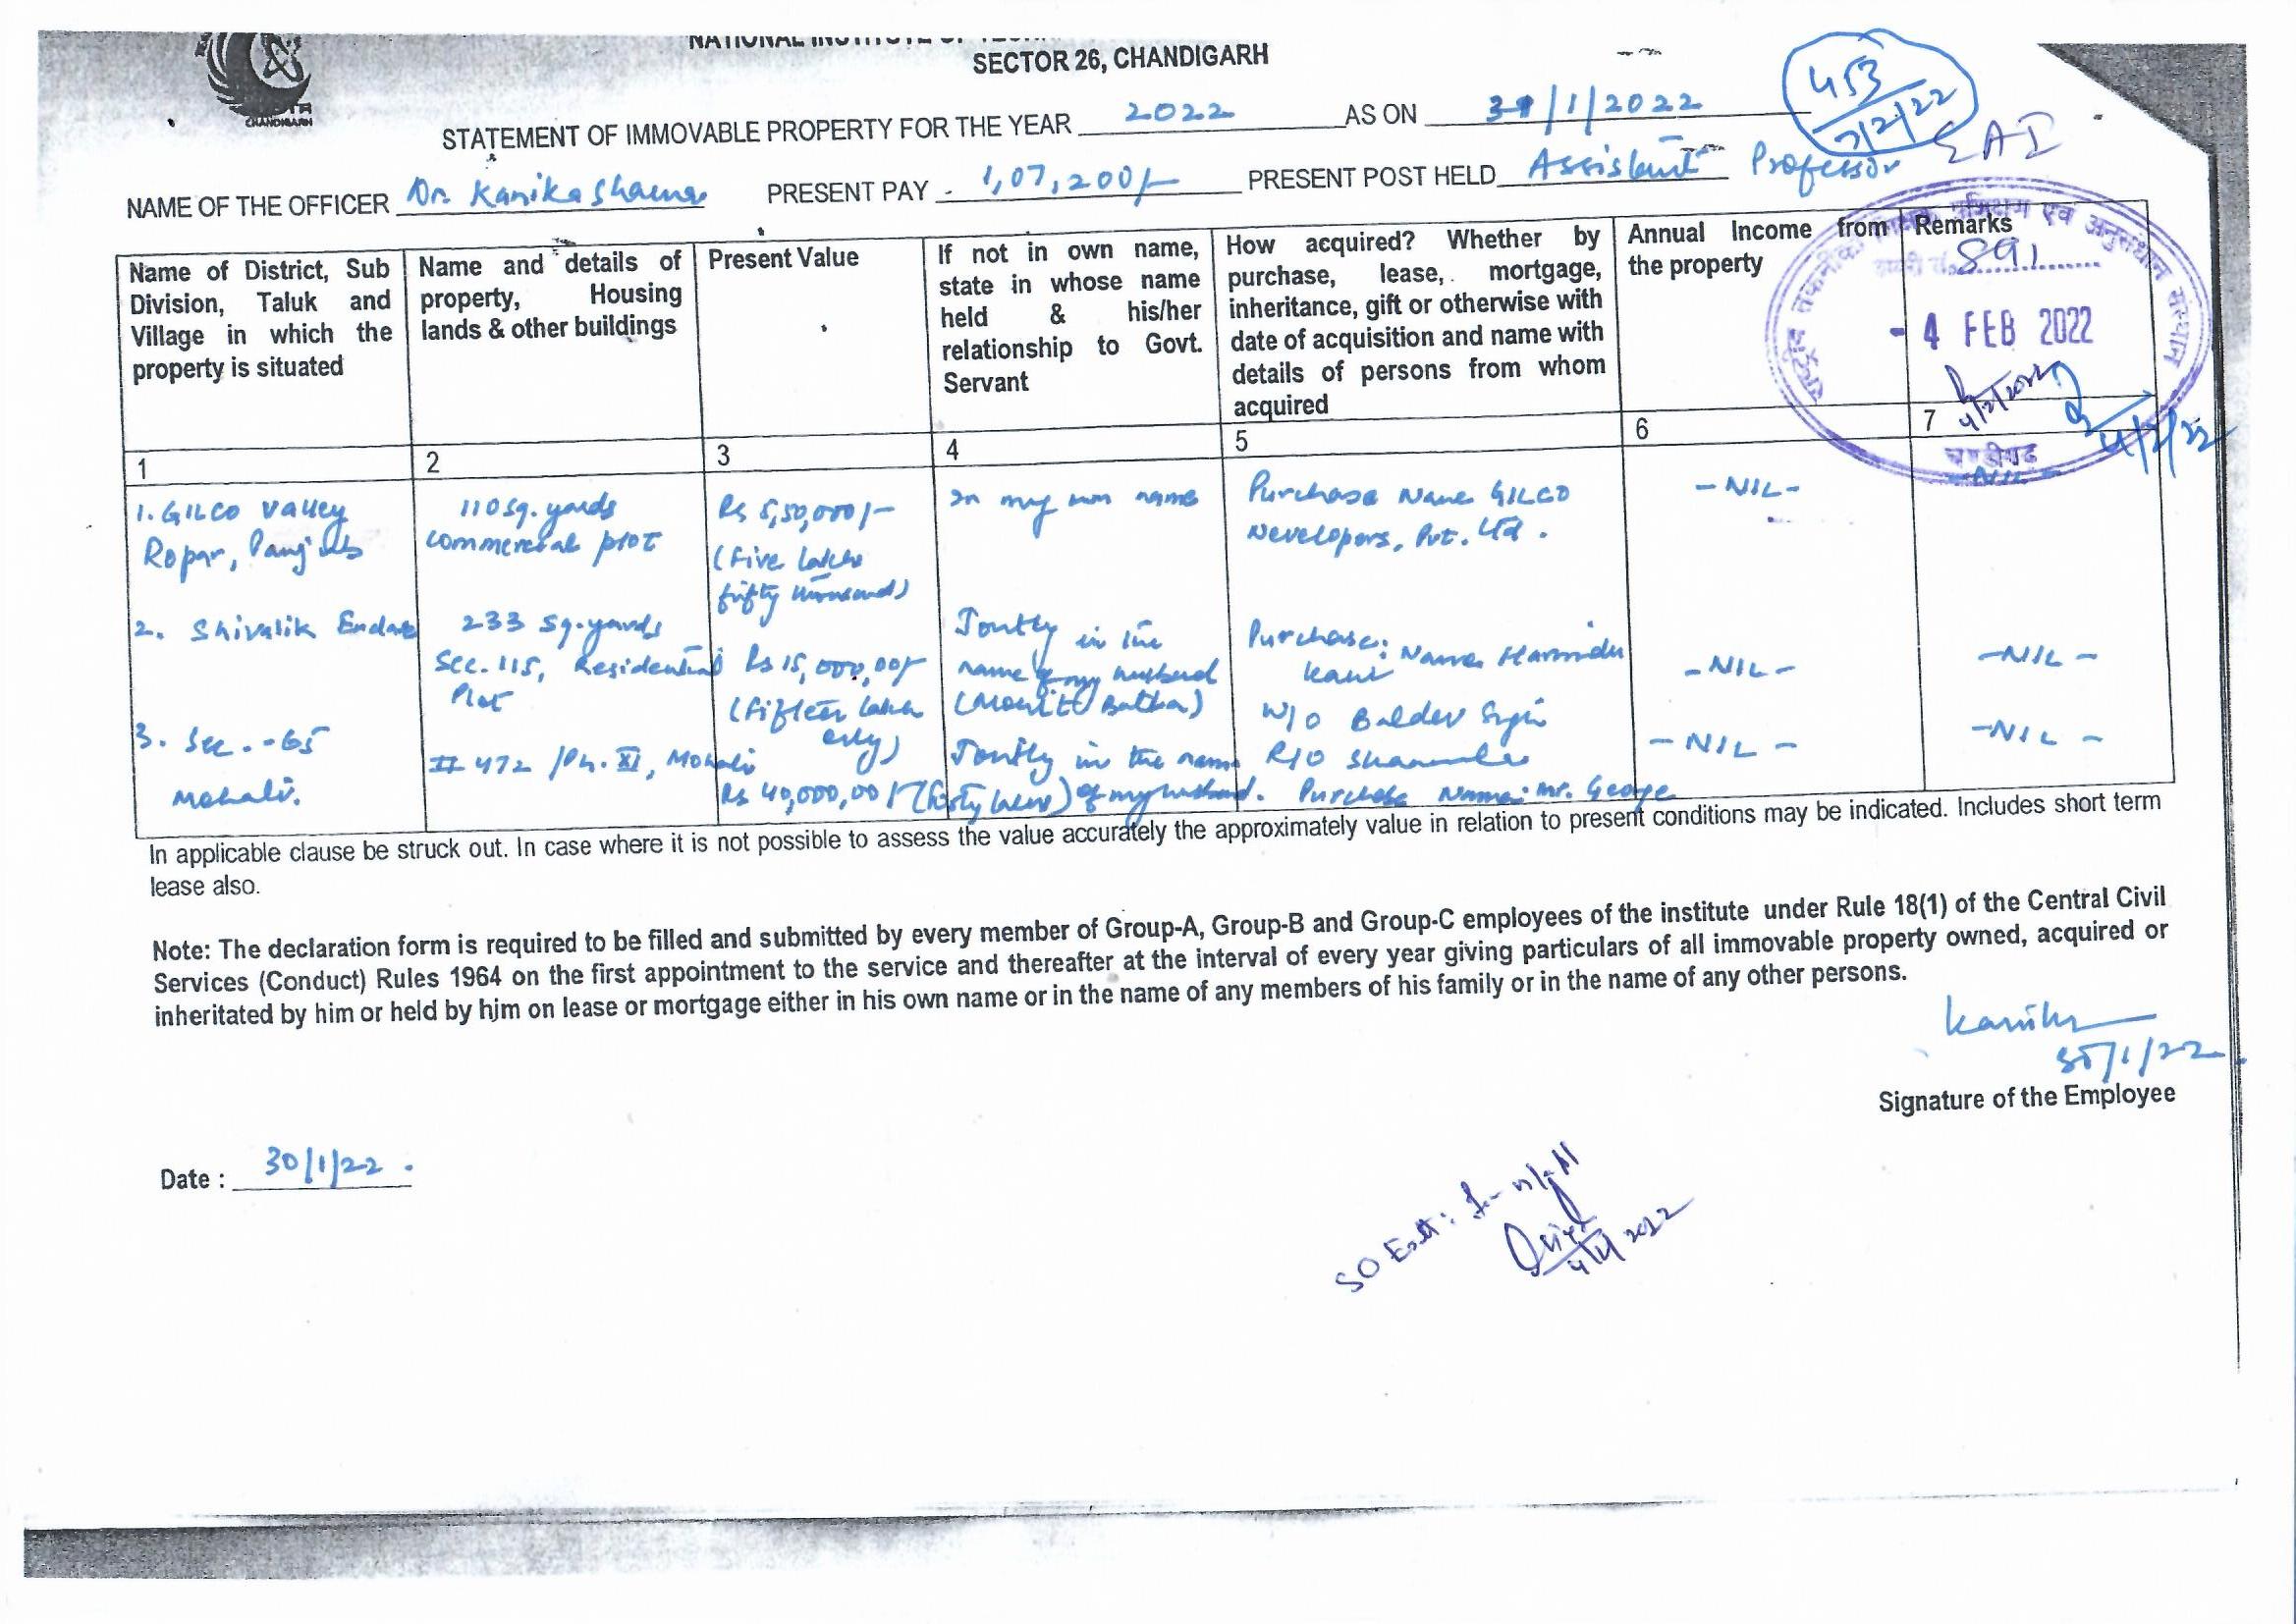 CHANDIGARH
SECTOR 26, CHANDIGARH
453
7/2/22
STATEMENT OF IMMOVABLE PROPERTY FOR THE YEAR 2022 AS ON 31/1/2022
NAME OF THE OFFICER Dr. Kanika Sharma PRESENT PAY - 1,07,200/- PRESENT POST HELD Assistant Professor
Name of District, Sub Division, Taluk and Village in which the property is situated
Name and details of property, Housing lands & other buildings
Present Value
If not in own name, state in whose name held & his/her relationship to Govt. Servant
How acquired? Whether by purchase, lease, mortgage, inheritance, gift or otherwise with date of acquisition and name with details of persons from whom acquired
Annual Income from the property
Remarks
891
- 4 FEB 2022
4/2/2022
4/2/22
चण्डीगढ़
1 2 3 4 5 6 7
1. GILCO Valley
Ropar, Punjab
110 sq. yards
commercial plot
Rs 5,50,000/-
(Five lakhs
fifty thousand)
In my own name
Purchase Name GILCO
Developers, Pvt. Ltd.
-NIL-
-NIL-
2. Shivalik Enclave
233 sq. yards
Sec. 115, Residential
Plot
Rs 15,000,00/-
(Fifteen lakhs
only)
Jontly in the
name of my husband
Purchase: Name Harminder
Kaur
W/O Baldev Singh
R/O
-NIL-
-NIL-
3. Sec. -65
Mohali.
# 472 /Ph. XI, Mohali
Rs 40,000,00/- (forty lakhs)
Jontly in the name
of my husband.
Purchase Name: Mr. George
-NIL-
-NIL-
In applicable clause be struck out. In case where it is not possible to assess the value accurately the approximately value in relation to present conditions may be indicated. Includes short term
lease also.
Note: The declaration form is required to be filled and submitted by every member of Group-A, Group-B and Group-C employees of the institute under Rule 18(1) of the Central Civil
Services (Conduct) Rules 1964 on the first appointment to the service and thereafter at the interval of every year giving particulars of all immovable property owned, acquired or
inheritated by him or held by him on lease or mortgage either in his own name or in the name of any members of his family or in the name of any other persons.
Kanika
30/1/22
Signature of the Employee
Date : 30/1/22.
SO Estt:
4/2/2022